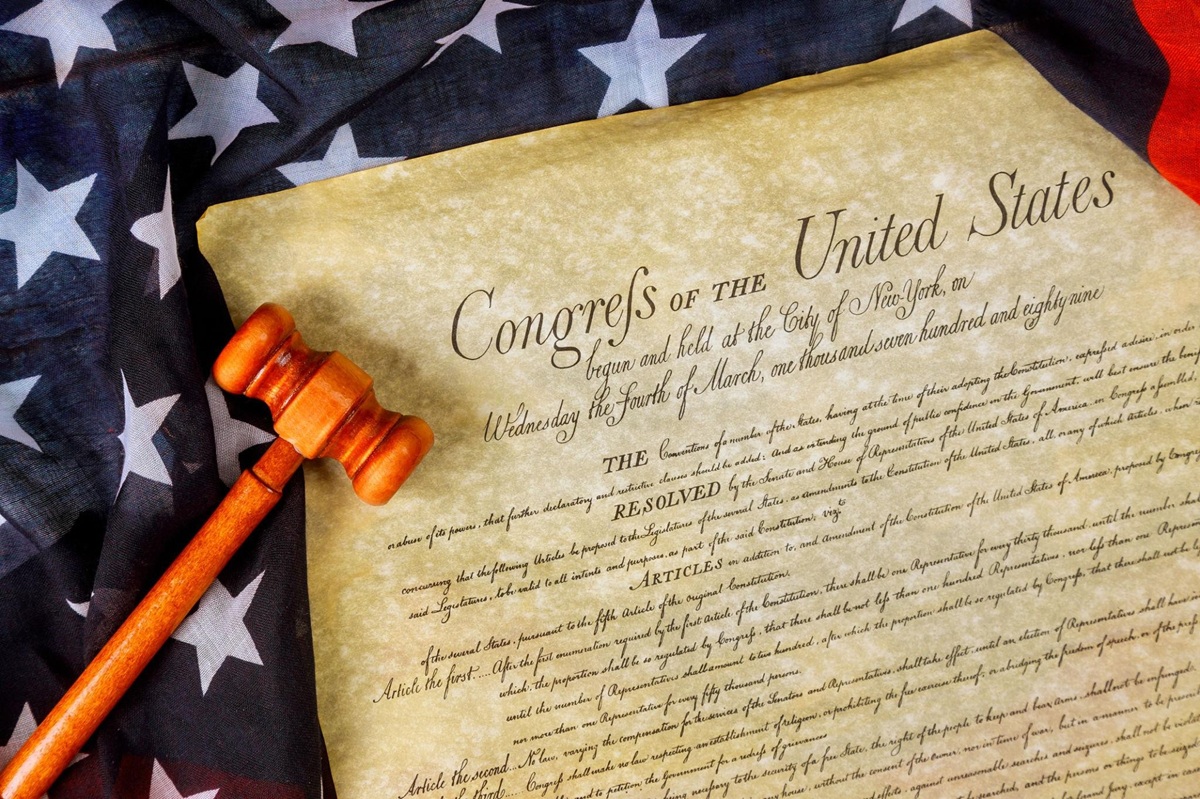 Congreſs OF THE United States
begun and held at the City of New-York, on
Wednesday the Fourth of March, one thousand seven hundred and eighty nine
THE Conventions of a number of the States, having at the time of their adopting the Constitution, expreſsed a desire, in order
or abuse of its powers, that further declaratory and restrictive clauses should be added: And as extending the ground of public confidence in the Government, will best ensure the
RESOLVED by the Senate and House of Representatives of the United States of America, in Congreſs aſsembled,
concurring, that the following Articles be proposed to the Legislatures of the several States, as amendments to the Constitution of the United States, all, or any of which Articles, when
said Legislatures, to be valid to all intents and purposes, as part of the said Constitution; vizt.
ARTICLES in addition to, and Amendment of the Constitution of the United States of America, proposed by
of the several States, pursuant to the fifth Article of the original Constitution.
Article the first.... After the first enumeration required by the first Article of the Constitution, there shall be one Representative for every thirty thousand, until the number
which, the proportion shall be so regulated by Congreſs, that there shall be not leſs than one hundred Representatives, nor leſs than one
until the number of Representatives shall amount to two hundred, after which the proportion shall be so regulated by Congreſs, that there shall not be
nor more than one Representative for every fifty thousand persons.
Article the second... No law, varying the compensation for the services of the Senators and Representatives, shall take effect, until an election of Representatives shall have
third.... Congreſs shall make no law respecting an establishment of religion, or prohibiting the free exercise thereof; or abridging the freedom of speech, or of the
to petition the Government for a redreſs of grievances
neceſsary to the security of a free State, the right of the people to keep and bear Arms, shall not be infringed.
house, without the consent of the owner, nor in time of war, but in a manner to be
effects, against unreasonable searches and seizures, shall not be
searched, and the persons or things to be
grand Jury, except in